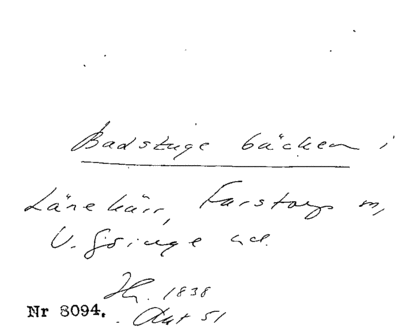 Badstuge bäcken i
Länekärr, Farstorp m,
V. Göinge hd.
Hr. 1838
Nr 8094. Akt 51